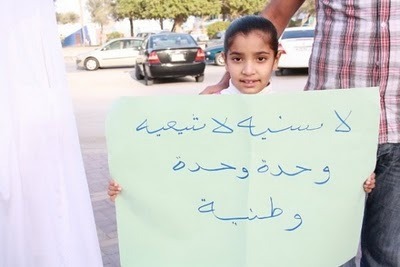 لا سنيه لا شيعيه
وحدة وحدة
وطنية